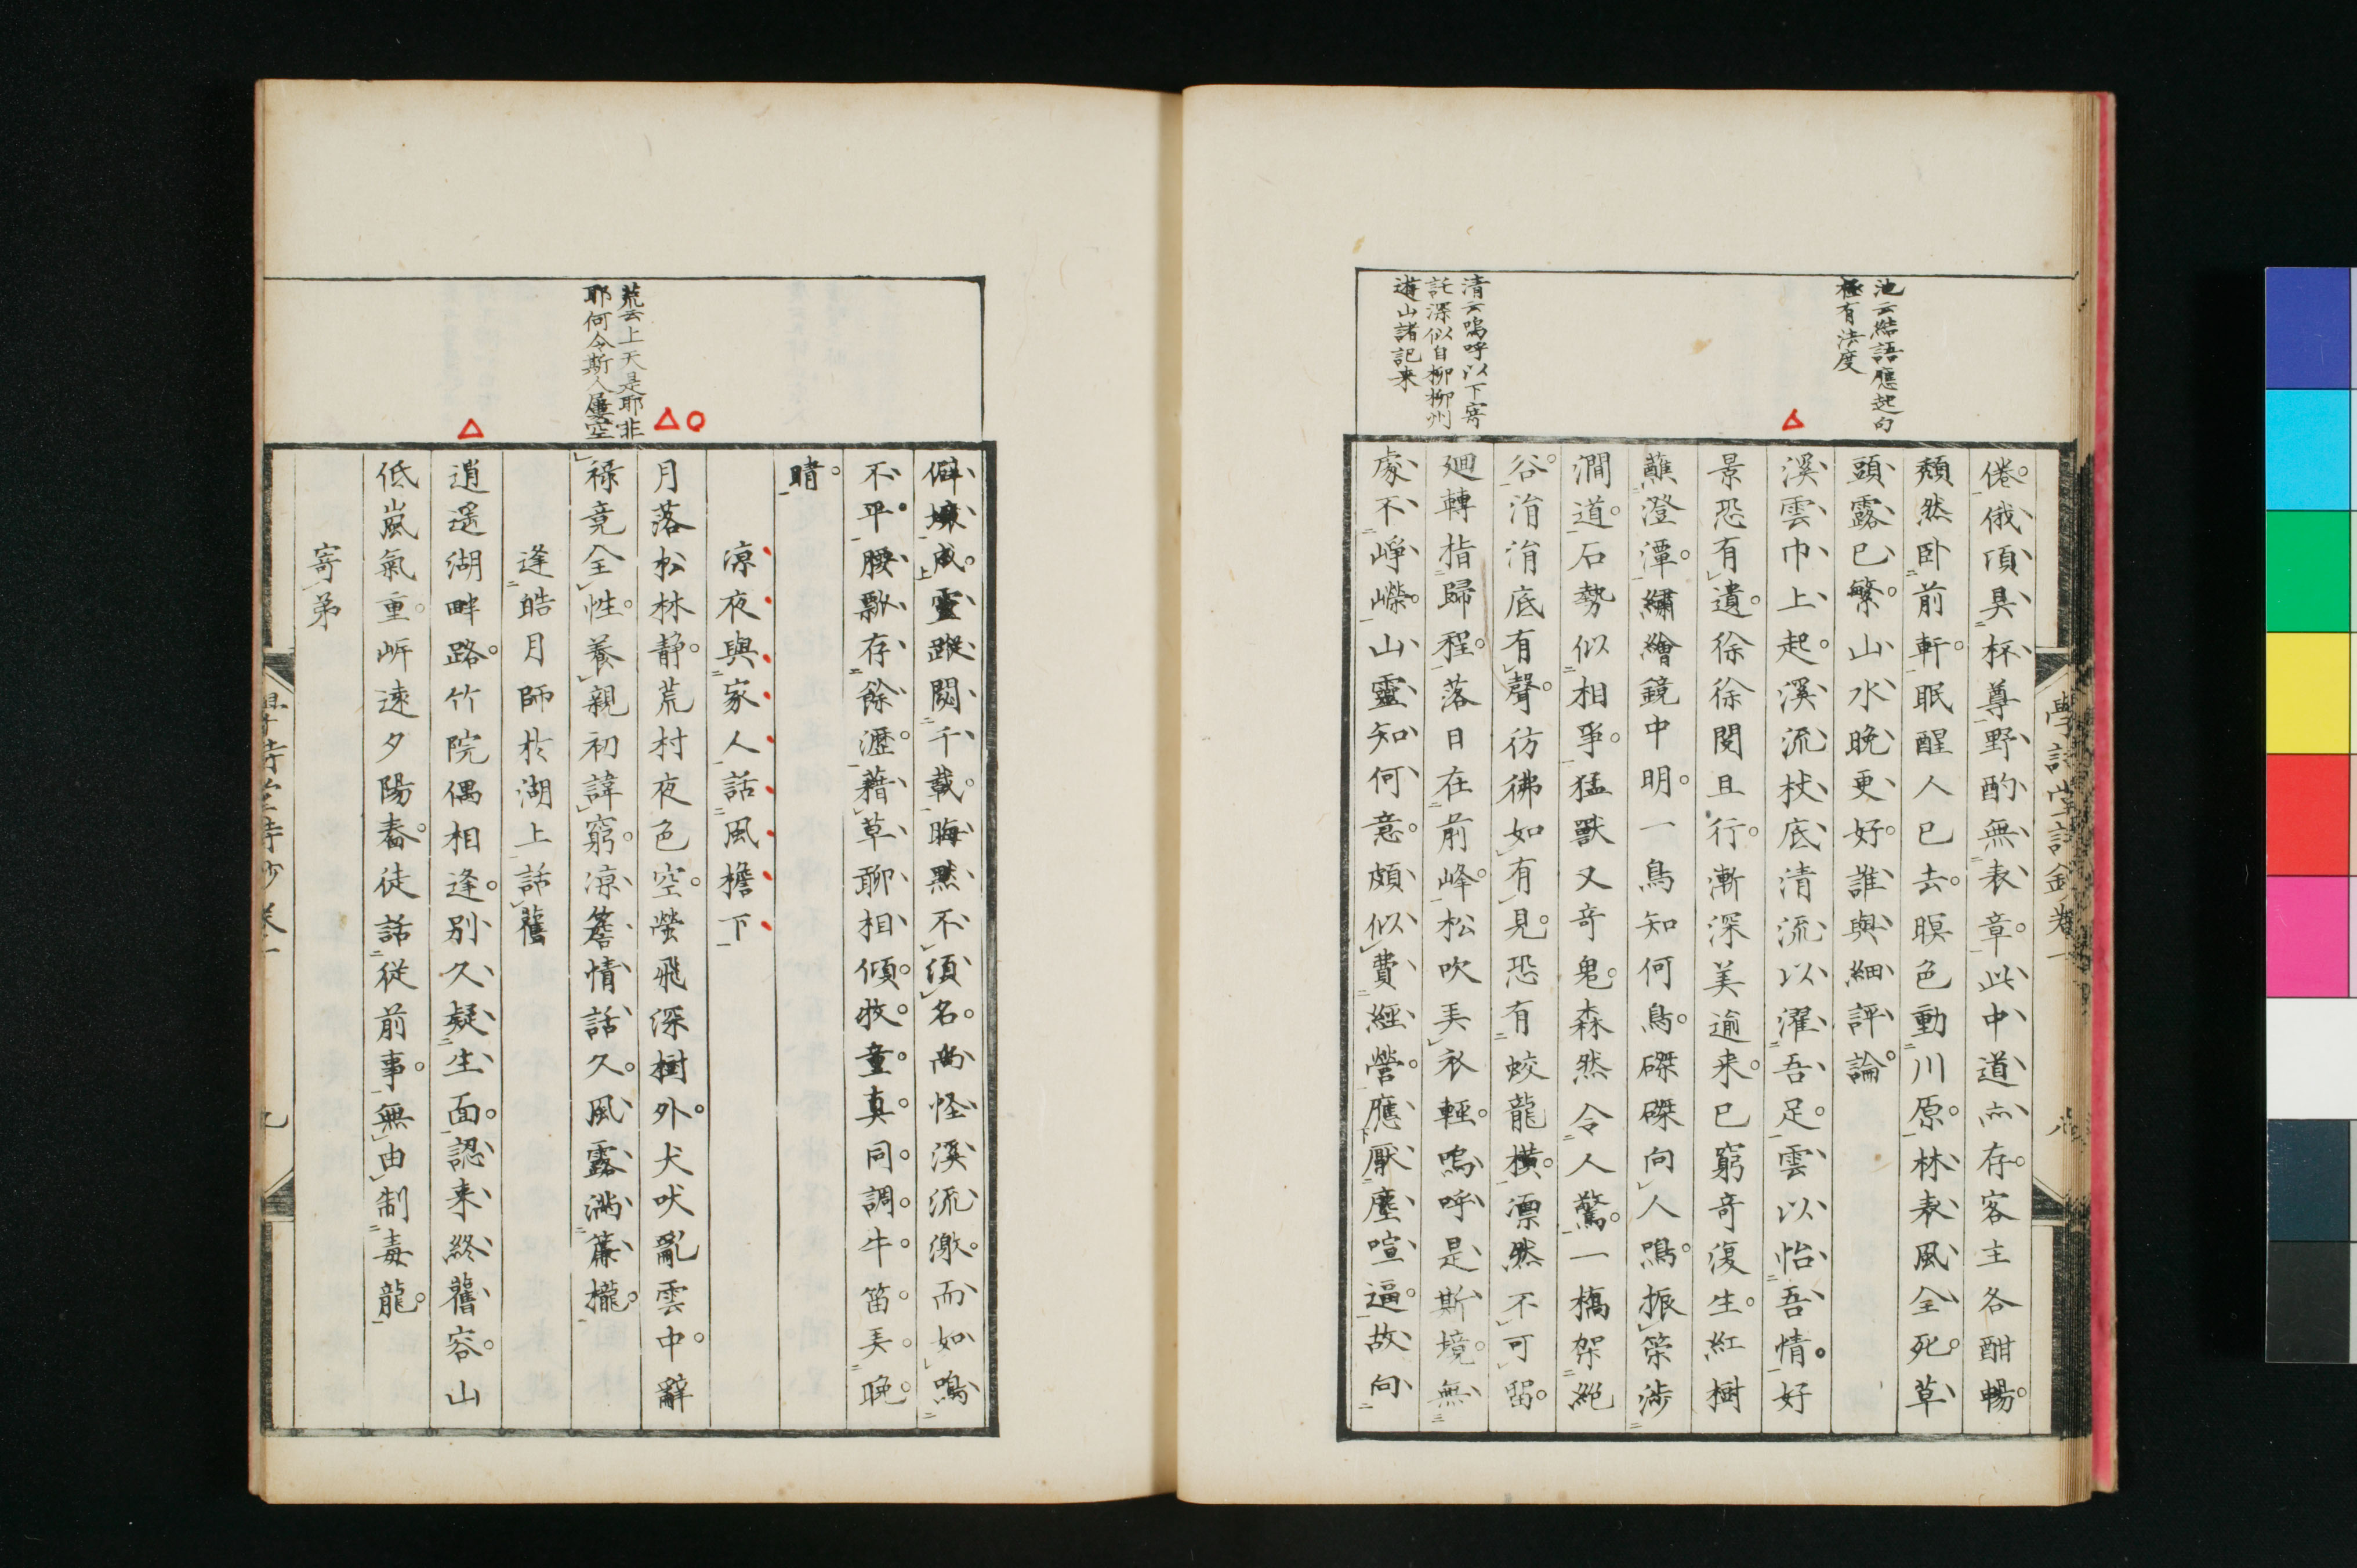 池云結語應起句
極有法度
清云嗚呼以下寄
託深似自柳柳州
遊山諸記来
倦俄頃具杯尊野酌無表章此中道亦存客主各酣暢
頽然卧前軒眠醒人已去暝色動川原林表風全死草
頭露已繁山水晩更好誰與細評論
溪雲巾上起溪流杖底清流以濯吾足雲以怡吾情好
景恐有遺徐徐閱且行漸深美逾来已窮奇復生紅樹
蘸澄潭繡繪鏡中明一鳥知何鳥磔磔向人鳴振策渉
澗道石勢似相爭猛獸又奇鬼森然令人驚一橋架絶
谷涓涓底有聲彷彿如有見恐有蛟龍横凛然不可留
廻轉指歸程落日在前峰松吹弄衣輕嗚呼是斯境無
處不崢嶸山靈知何意頗似費經營應厭塵喧逼故向
學詩堂詩鈔卷一
荒云上天是耶非
耶何令斯人屢空
僻壤成靈蹤閟千載晦黙不須名尚怪溪流激而如鳴
不平腰瓢存餘瀝藉草聊相傾牧童真同調牛笛弄晩
晴
凉夜與家人話風檐下
月落松林静荒村夜色空螢飛深樹外犬吠亂雲中辭
祿竟全性養親初諱窮凉簷情話久風露滿簾櫳
逢皓月師於湖上話舊
逍遥湖畔路竹院偶相逢別久疑生面認来終舊容山
低嵐氣重岍遠夕陽舂徒話従前事無由制毒龍
寄弟
學詩堂詩鈔卷一
九